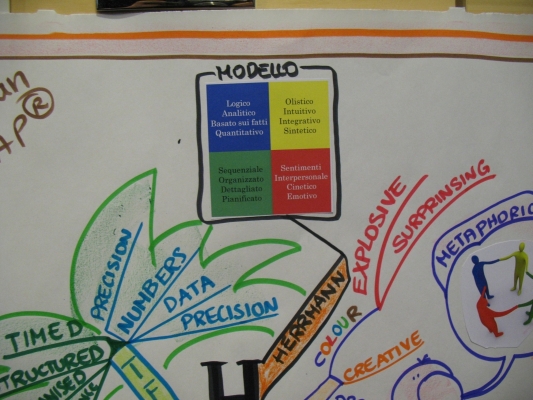 an
AP®
MODELLO
Logico
Analitico
Basato sui fatti
Quantitativo
Olistico
Intuitivo
Integrativo
Sintetico
Sequenziale
Organizzato
Dettagliato
Pianificato
Sentimenti
Interpersonale
Cinetico
Emotivo
PRECISION
NUMBERS
DATA
PRECISION
TIMED
STRUCTURED
HERRMANN
H
EXPLOSIVE
SURPRINSING
COLOUR
CREATIVE
METAPHORIC